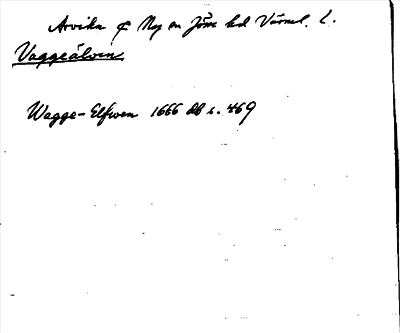 Arvika o Ny sn Jösse hd Värml. l.
Vaggeälven
Wagge-Elfwen 1666 db s. 469